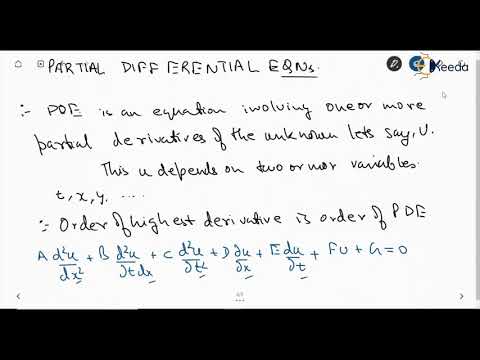 PARTIAL DIFFERENTIAL EQNs.
Keeda
:- PDE is an equation involving one or more
partial derivatives of the unknown lets say, U.
This u depends on two or mor variables.
t, x, y, ....
:- Order of highest derivative is order of PDE
A d²u/dx² + B d²u/∂t dx + C d²u/∂t² + D ∂u/∂x + E du/∂t + FU + G = 0